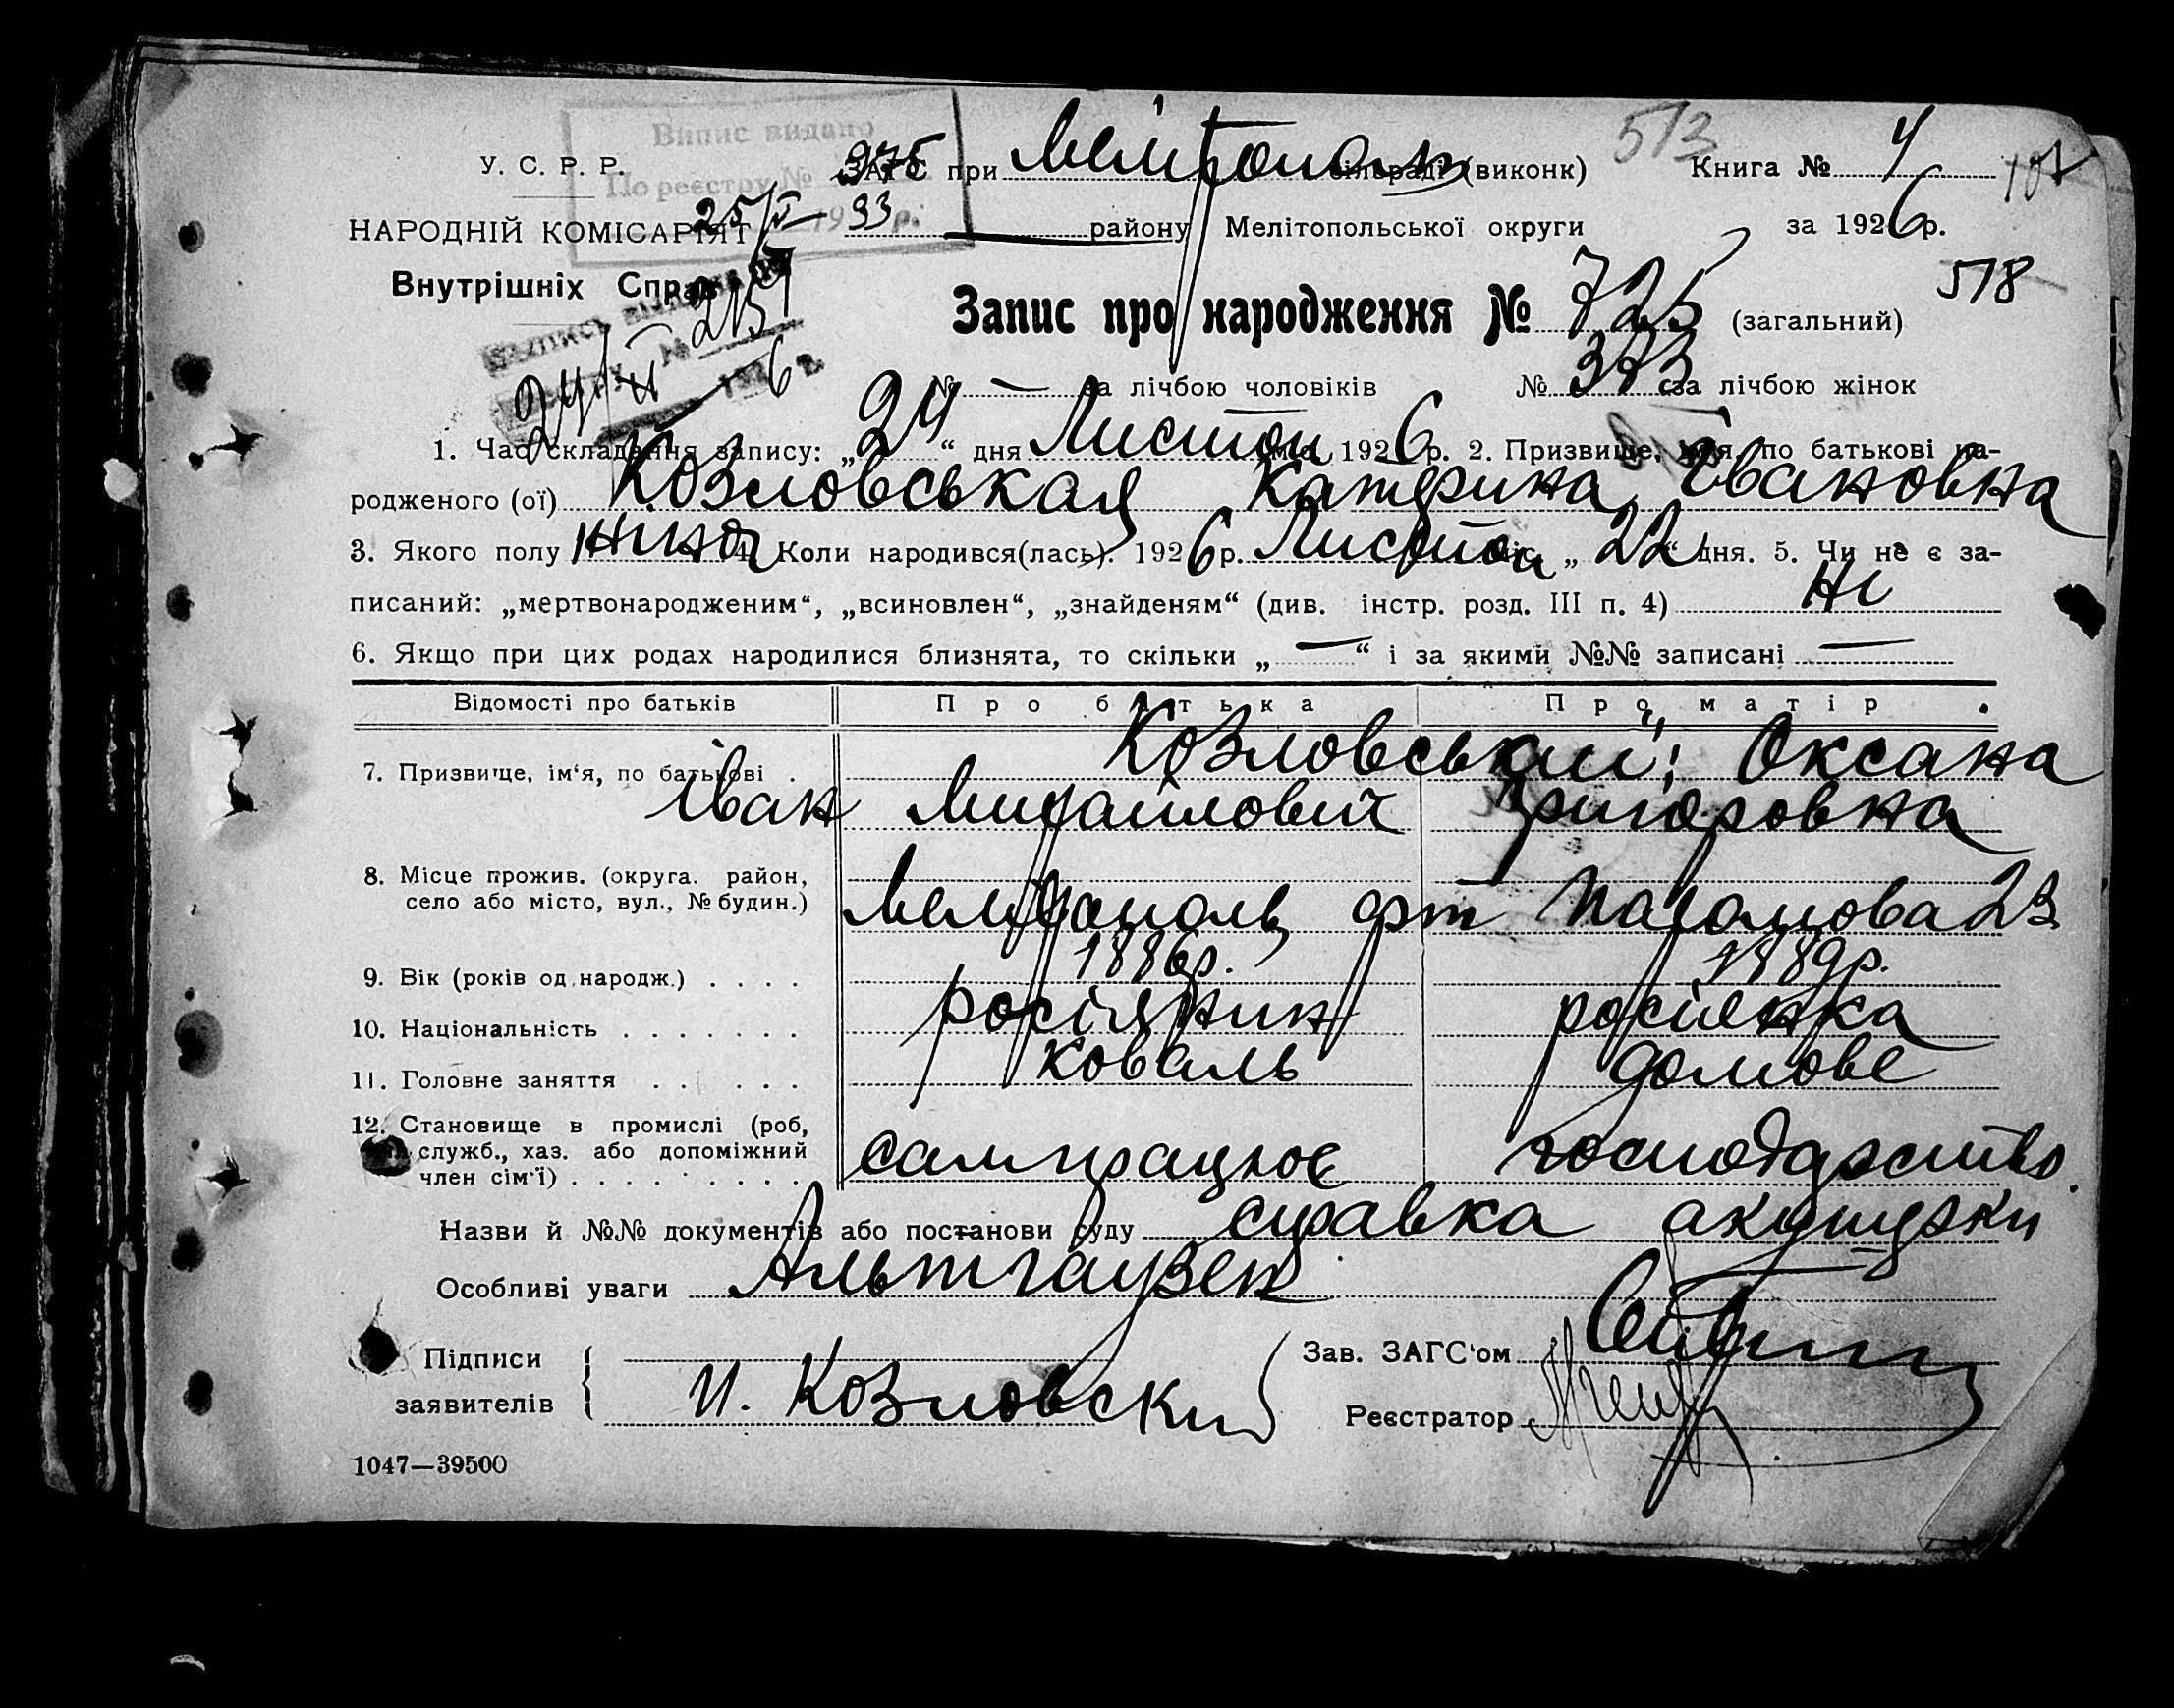 Випис видано
По реєстру № 975
25/V 1933 р.
У. С. Р. Р.
НАРОДНІЙ КОМІСАРІЯТ
Внутрішніх Справ
№ 2151
24/XI 1926 р.
ЗАГС при Мелітополь сільраді (виконк)
513
Книга № 4
107
району Мелітопольської округи
за 1926 р.
518
Запис про народження № 725 (загальний)
№ — за лічбою чоловіків № 373 за лічбою жінок
1. Час складання запису: „24“ дня Листоп 1926 р. 2. Призвище, ім'я, по батькові на-
родженого (ої) Козловськая Катерина Івановна
3. Якого полу жіноч 4. Коли народився(лась). 1926 р. Листоп міс. „22“ дня. 5. Чи не є за-
писаний: „мертвонародженим“, „всиновлен“, „знайденям“ (див. інстр. розд. III п. 4) Ні
6. Якщо при цих родах народилися близнята, то скільки „—“ і за якими №№ записані —
Відомості про батьків Про батька Про матір
7. Призвище, ім'я, по батькові . Козловський; Оксана
Іван Михайлович Григоровна
8. Місце прожив. (округа. район,
село або місто, вул., № будин.) Мелітополь 23
9. Вік (років од народж.) . . . . 1886р. 1889р.
10. Національність . . . . . . . росіянин росіянка
11. Головне заняття . . . . . . коваль домове
12. Становище в промислі (роб,
служб., хаз. або допоміжний
член сім'ї) . . . . . . . . . . сам працює господарство.
Назви й №№ документів або постанови суду справка акушерки
Особливі уваги Альтгаузен
Підписи
заявителів
И. Козловский
Зав. ЗАГС'ом
Реєстратор
1047—39500